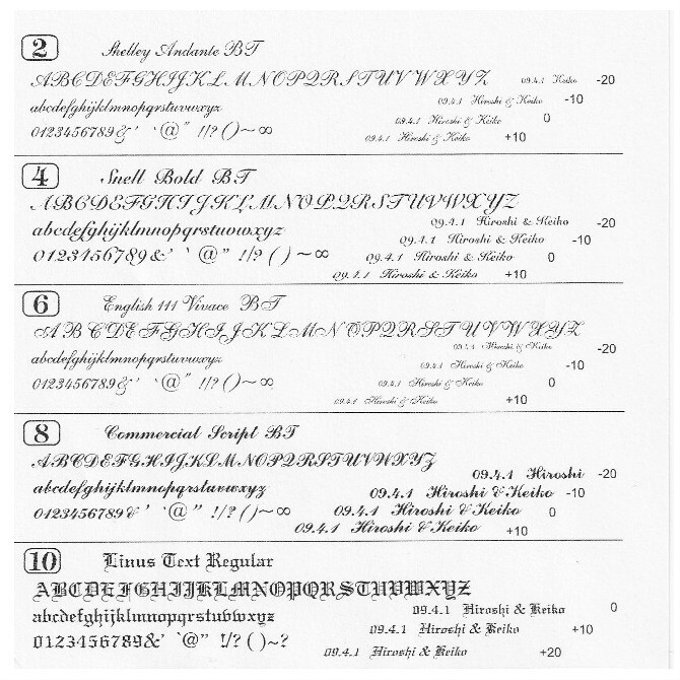 2 Shelley Andante BT
ABCDEFGHIJKLMNOPQRSTUVWXYZ 09.4.1 Keiko -20
abcdefghijklmnopqrstuvwxyz 09.4.1 Hiroshi & Keiko -10
09.4.1 Hiroshi & Keiko 0
0123456789&' `@" !/?()~∞ 09.4.1 Hiroshi & Keiko +10
4 Snell Bold BT
ABCDEFGHIJKLMNOPQRSTUVWXYZ
09.4.1 Hiroshi & Keiko -20
abcdefghijklmnopqrstuvwxyz 09.4.1 Hiroshi & Keiko -10
0123456789&' ` @" !/? ( ) ~∞ 09.4.1 Hiroshi & Keiko 0
09.4.1 Hiroshi & Keiko +10
6 English 111 Vivace BT
ABCDEFGHIJKLMNOPQRSTUVWXYZ
09.4.1 Hiroshi & Keiko -20
abcdefghijklmnopqrstuvwxyz 09.4.1 Hiroshi & Keiko -10
0123456789&' `@" !/? ()~∞ 09.4.1 Hiroshi & Keiko 0
09.4.1 Hiroshi & Keiko +10
8 Commercial Script BT
ABCDEFGHIJKLMNOPQRSTUVWXYZ
09.4.1 Hiroshi -20
abcdefghijklmnopqrstuvwxyz 09.4.1 Hiroshi & Keiko -10
0123456789& ' `@" !/? ( )~∞ 09.4.1 Hiroshi & Keiko 0
09.4.1 Hiroshi & Keiko +10
10 Linus Text Regular
ABCDEFGHIJKLMNOPQRSTUVWXYZ
09.4.1 Hiroshi & Keiko 0
abcdefghijklmnopqrstuvwxyz
09.4.1 Hiroshi & Keiko +10
0123456789&' `@" !/? ( )~?
09.4.1 Hiroshi & Keiko +20